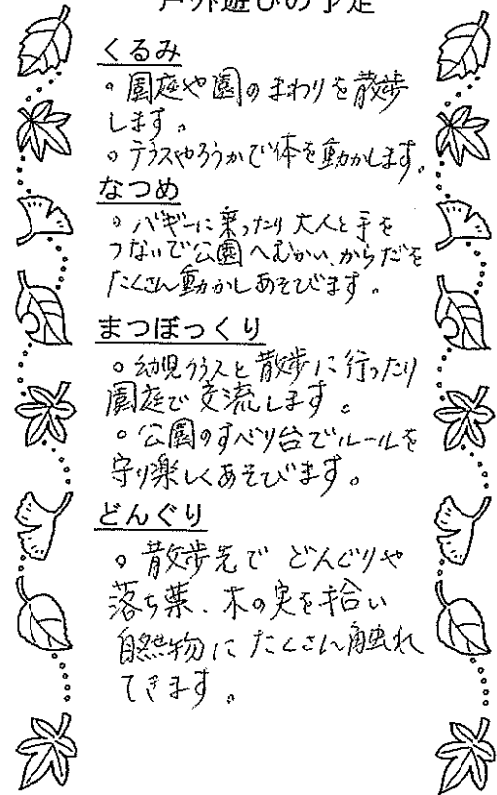 戸外遊びの予定
くるみ
。園庭や園のまわりを散歩
します。
。テラスやろうかで体を動かします。
なつめ
。バギーに乗ったり大人と手を
つないで公園へむかい、からだを
たくさん動かしあそびます。
まつぼっくり
。幼児クラスと散歩に行ったり
園庭で交流します。
。公園のすべり台でルールを
守り楽しくあそびます。
どんぐり
。散歩先で どんぐりや
落ち葉、木の実を拾い
自然物に たくさん触れ
てきます。